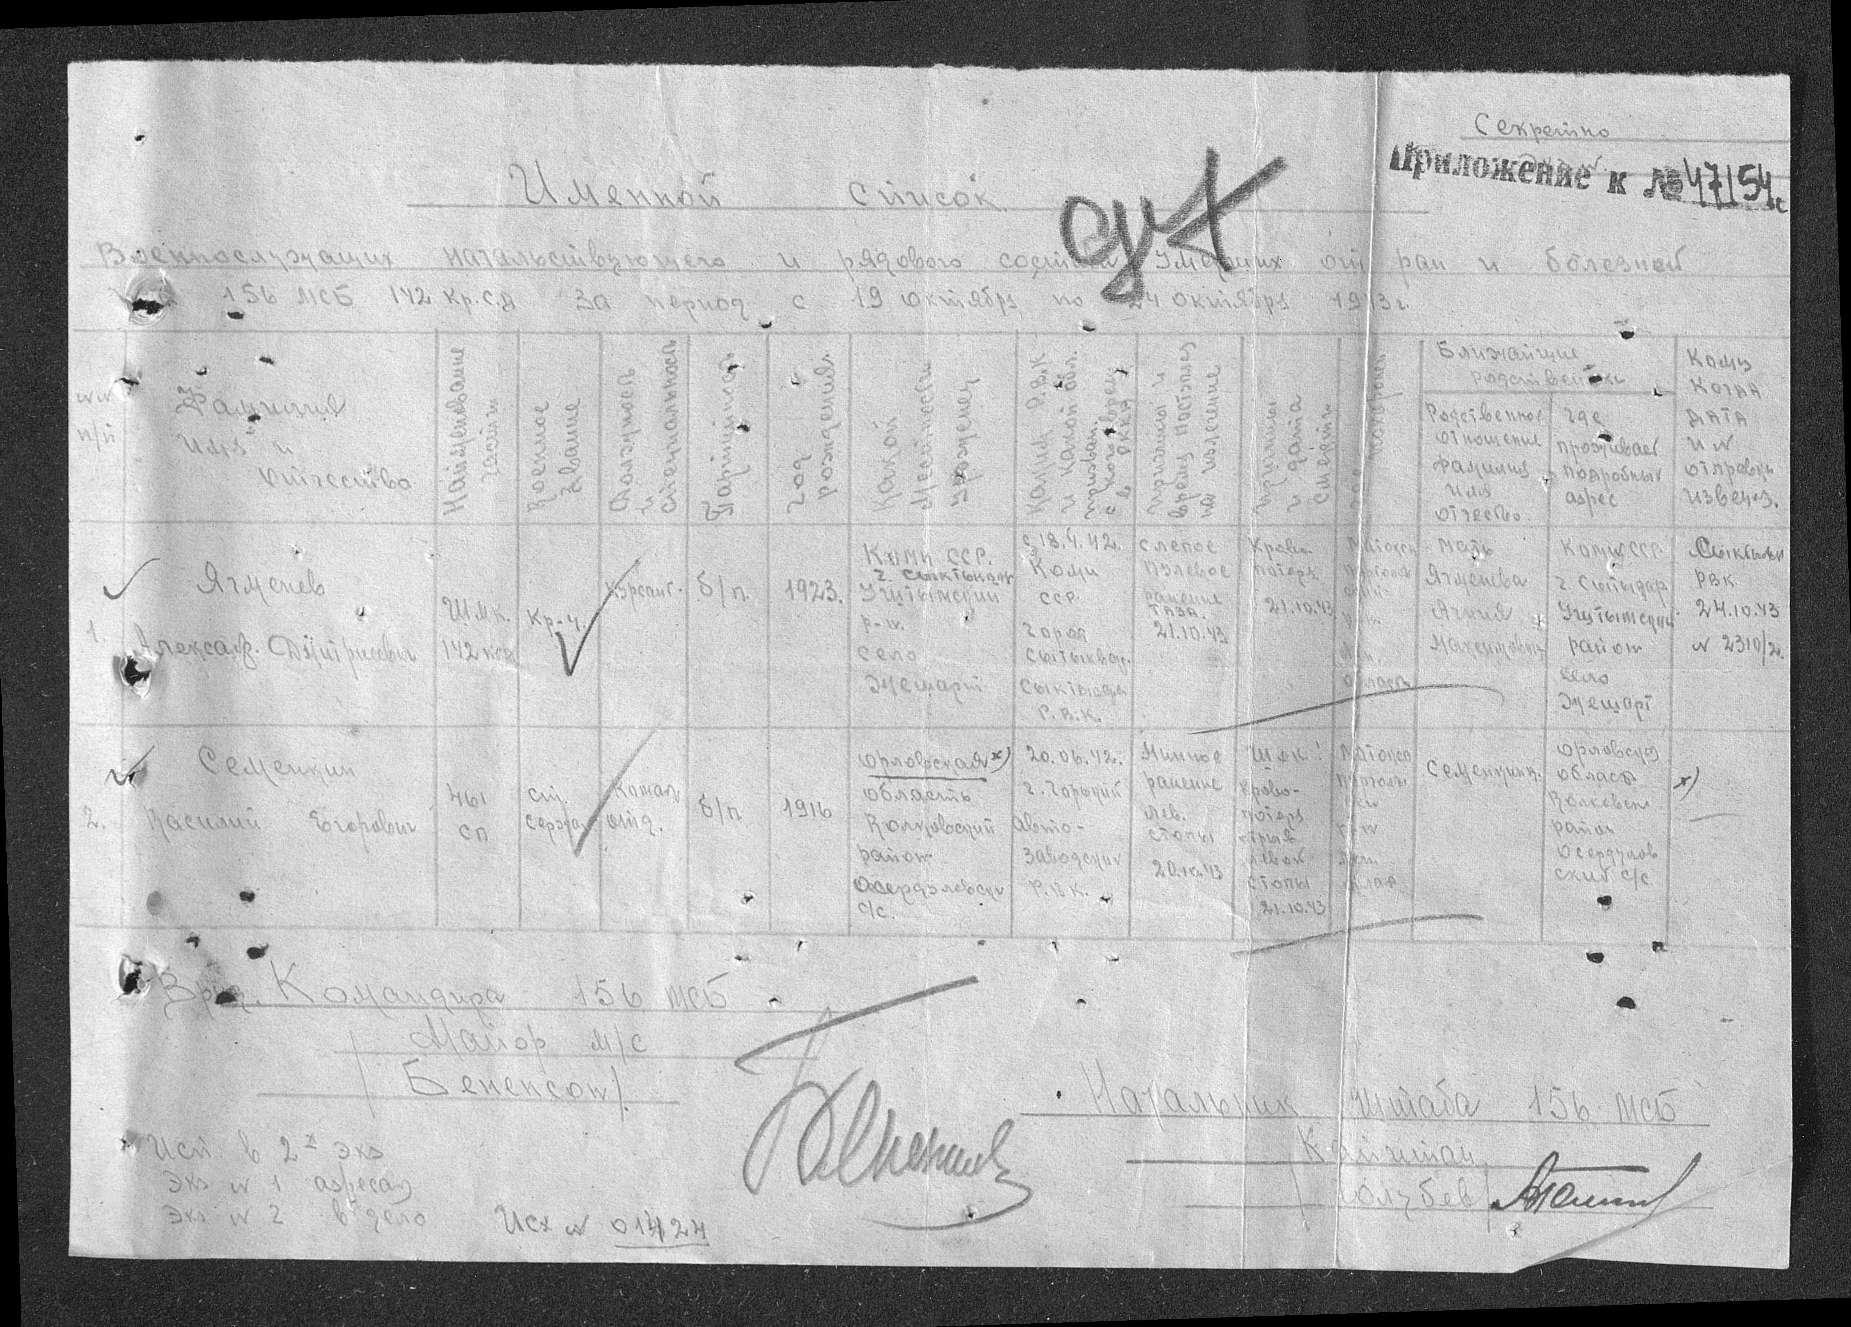 Секретно
Приложение к №47154с
Именной список
Военнослужащих начальствующего и рядового состава умерших от ран и болезней
156 МСБ 142 Кр.С.Д за период с 19 октября по 24 октября 1943 г.
№№ п/п
Фамилия
имя и
отчество
Наименование части
Военное звание
Должность и специальность
Партийность
Год рождения
Какой местности уроженец
Каким Р.В.К и какой обл. призван. с какого врем. в РККА
причина и время поступлен на излечение
причина и дата смерти
похоронен
Ближайшие
родственники
Родственное
отношение
фамилия
имя
отчество
где
проживает
подробный
адрес
Кому
когда
дата
и №
отправки
извещ.
1.
Ячменев
Александ. Дмитриевич
Ш.М.К.
142
Кр-ц.
Курсант.
б/п.
1923.
Коми ССР.
г. Сыктывкар
р-н.
село
Жешарт
с 18.4.42.
Коми
ССР.
город
Сыктывкар.
Р.В.К.
слепое
пулевое
ранение
таза.
21.10.43
Крово-
потеря
21.10.43
область
мать
Ячменева
Коми ССР.
район
село
Жешарт
РВК
24.10.43
№ 2310/2
2.
Семенкин
Василий Егорович
461
СП
ст.
сержан
Коман
отд.
б/п
1916
Орловская х)
область
Волховский
район
с/с.
20.06.42.
г. Горький
Авто-
заводский
Р.В.К.
Минное
ранение
лев.
стопы
20.10.43
Шок!
крово-
потеря
отрыв
левой
стопы
21.10.43
Семенкин.
Орловская
область
район
ский с/с.
х)
Врид. Командира 156 МСБ
Майор м/с
/Бененсон/.
Начальник штаба 156 МСБ
Капитан
/Голубев/
Исп. в 2х экз
Экз № 1 адресату
Экз № 2 в дело
Исх № 01424